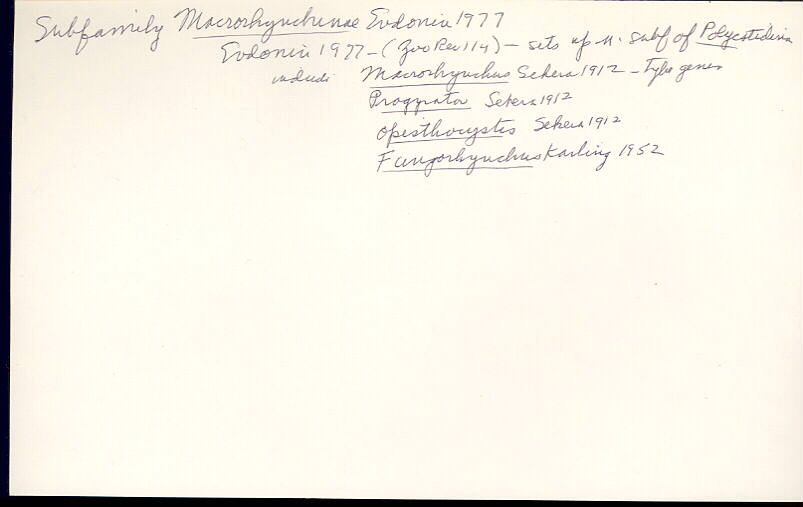 Subfamily Macrorhynchinae Evdonin 1977
Evdonin 1977 - (Zoo Rec 114) - sets up n. subf of Polycistididae
includes Macrorhynchus Sekera 1912 - Type genus
Progyrator Sekera 1912
Opisthocystis Sekera 1912
Fungorhynchus Karling 1952